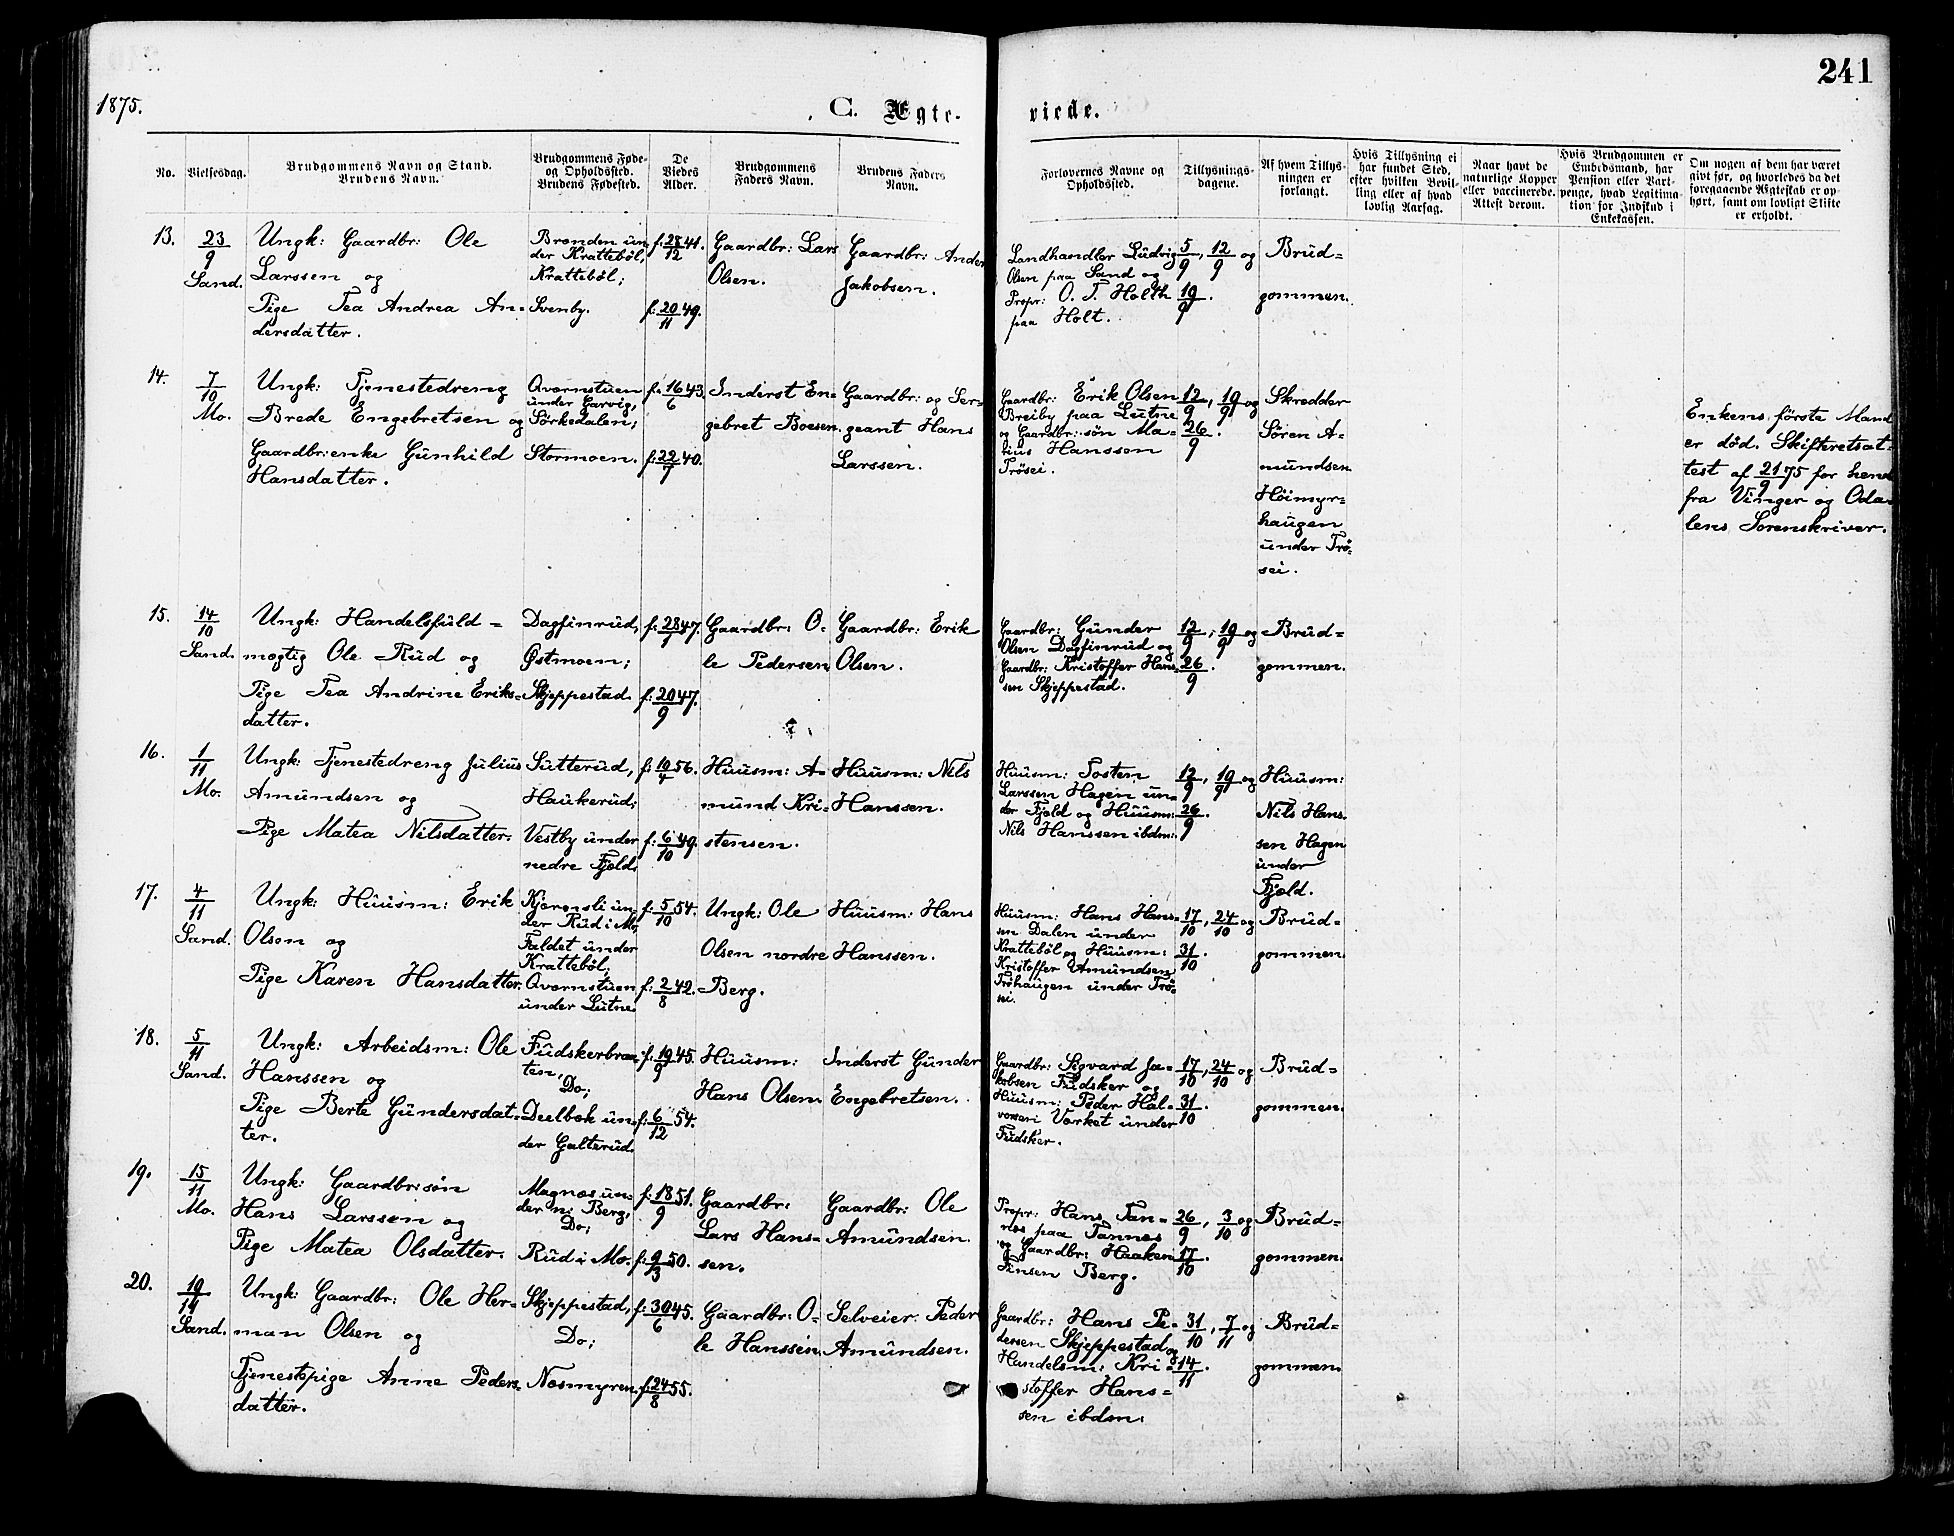 241
1875.
C. Ægte-
viede.
No.
Vielsesdag.
Brudgommens Navn og Stand.
Brudens Navn.
Brudgommens Føde-
og Opholdssted.
Brudens Fødested.
De
Viedes
Alder.
Brudgommens
Faders Navn.
Brudens Faders
Navn.
Forlovernes Navne og
Opholdssted.
Tillysnings-
dagene.
Af hvem Tillys-
ningen er
forlangt.
Hvis Tillysning ei
har fundet Sted,
efter hvilken Bevil-
ling eller af hvad
lovlig Aarsag.
Naar havt de
naturlige Kopper
eller vaccinerede.
Attest derom.
Hvis Brudgommen er
Embedsmand, har
Pension eller Vart-
penge, hvad Legitima-
tion for Indskud i
Enkekassen.
Om nogen af dem har været
givt før, og hvorledes da det
foregaaende Ægteskab er op-
hørt, samt om lovligt Skifte
er erholdt.
13.
23/9
Sand.
Ungk: Gaardbr: Ole
Larssen og
Pige Tea Andrea An-
dersdatter.
Brenden un
der Kratteböl,
Kratteböl;
Svenby.
f: 28/12 41.
f: 20/11 49.
Gaardbr: Lars
Olsen.
Gaardbr: Anders
Jakobsen.
Landhandler Ludvig
Olsen paa Sand og
Propr: O. T. Holth
paa Holt.
5/9, 12/9 og
19/9.
Brud=
gommen.
14.
7/10
Mo.
Ungk: Tjenestedreng
Brede Engebretsen og
Gaardbr:enke Gunhild
Hansdatter.
Qvernstuen
under Garvig,
Sörkedalen;
Stormoen.
f: 16/6 43.
f: 22/7 40.
Inderst En=
gebret Boesen.
Gaardbr: og Ser-
geant Hans
Larssen.
Gaardbr: Erik Olsen
Breiby paa Lutne
og Gaardbr:sön Ma=
rius Hanssen
Trösei.
12/9, 19/9 og
26/9.
Skredder
Sören A-
mundsen
Höimyr=
haugen
under Trö-
sei.
Enkens förste Mand
er död. Skifteretsat-
test af 21/9 75 for hende
fra Vinger og Oda-
lens Sorenskriver.
15.
14/10
Sand.
Ungk: Handelsfuld=
mægtig Ole Rud og
Pige Tea Andrine Eriks=
datter.
Dagfinrud,
Østmoen;
Skjeppestad.
f: 28/7 47.
f: 20/9 47.
Gaardbr: O-
le Pedersen
Gaardbr: Erik
Olsen.
Gaardbr: Gunder
Olsen Dagfinrud og
Gaardbr: Kristoffer Hans=
sen Skjeppestad.
12/9, 19/9 og
26/9.
Brud=
gommen.
16.
1/11
Mo.
Ungk: Tjenestedreng Julius
Amundsen og
Pige Matea Nilsdatter.
Sutterud,
Haukerud;
Vestby under
nedre Fjeld.
f: 10/4 56.
f: 6/10 49.
Huusm: A-
mund Kri-
stensen.
Huusm: Nils
Hanssen.
Huusm: Tosten
Larssen Hagen un=
der Fjeld og Huusm:
Nils Hanssen ibdm:
12/9, 19/9 og
26/9.
Huusm:
Nils Hans-
sen Hagen
under
Fjeld.
17.
4/11
Sand.
Ungk: Huusm: Erik
Olsen og
Pige Karen Hansdatter.
Kjærensli un-
der Rud i Mo,
Faldet under
Kratteböl;
Qvernstuen
under Lutne.
f: 5/10 54.
f: 2/8 42.
Ungk: Ole
Olsen nordre
Berg.
Huusm: Hans
Hanssen.
Huusm: Hans Hans-
sen Dalen under
Kratteböl og Huusm:
Kristoffer Amundsen
Tröhaugen under Trö-
sei.
17/10, 24/10 og
31/10.
Brud=
gommen.
18.
5/11
Sand.
Ungk: Arbeidsm: Ole
Hanssen og
Pige Berte Gundersdat-
ter.
Fudskerbraa-
ten,
Do;
Deelbæk un-
der Galterud.
f: 19/9 45.
f: 6/12 54.
Huusm:
Hans Olsen.
Inderst Gunder
Engebretsen.
Gaardbr: Sigvard Ja-
kobsen Fudsker og
Huusm: Peder Hal-
vorsen Værket under
Fudsker.
17/10, 24/10 og
31/10.
Brud=
gommen.
19.
15/11
Mo.
Ungk: Gaardbr:sön
Hans Larssen og
Pige Matea Olsdatter.
Magnæs un-
der n: Berg,
Do;
Rud i Mo.
f: 18/9 51.
f: 9/3 50.
Gaardbr:
Lars Hans-
sen.
Gaardbr: Ole
Amundsen.
Propr: Hans Tan=
næs paa Tannes
og Gaardbr: Haaken
Finsen Berg.
26/9, 3/10 og
17/10.
Brud=
gommen.
20.
19/11
Sand.
Ungk: Gaardbr: Ole Her-
man Olsen og
Tjenestepige Anne Peders-
datter.
Skjeppestad,
Do;
Næsmyren.
f: 30/6 45.
f: 24/8 55.
Gaardbr: O-
le Hanssen.
Selveier Peder
Amundsen.
Gaardbr: Hans Pe-
dersen Skjeppestad og
Handelsm: Kri-
stoffer Hans=
sen ibdm:
31/10, 7/11 og
14/11.
Brud=
gommen.